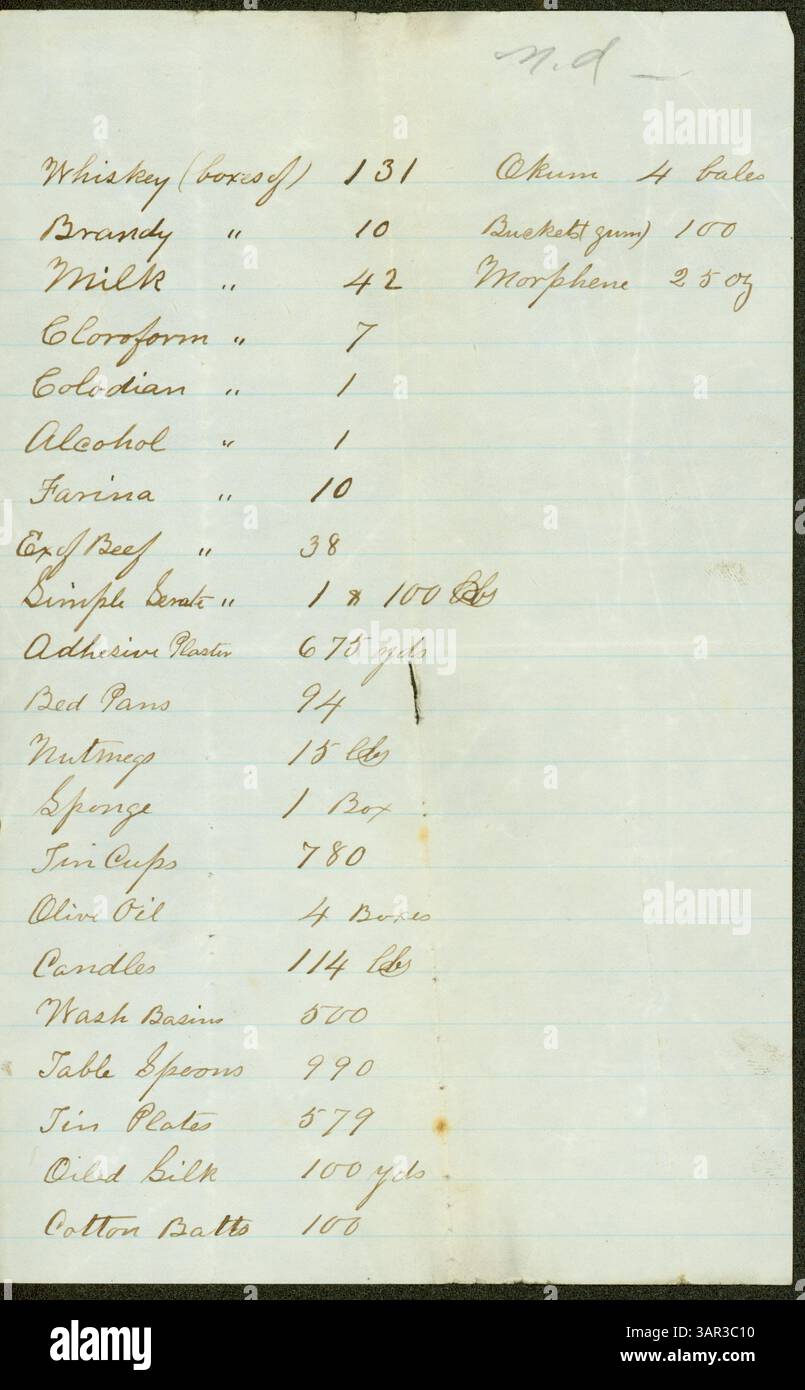 n.d —
Whiskey (boxes of) 131
Brandy " 10
Milk " 42
Cloroform " 7
Colodian " 1
Alcohol " 1
Farina " 10
Ex of Beef " 38
Simple Serate " 1 100 lbs
Adhesive Plaster 675 yds
Bed Pans 94
Nutmegs 15 lbs
Sponge 1 Box
Tin Cups 780
Olive Oil 4 Boxes
Candles 114 lbs
Wash Basins 500
Table Spoons 990
Tin Plates 579
Oiled Silk 100 yds
Cotton Batts 100
Okum 4 bales
Buckets (gum) 100
Morphene 25 oz
alamy
a
alamy
Image ID: 3AR3C10
www.alamy.com